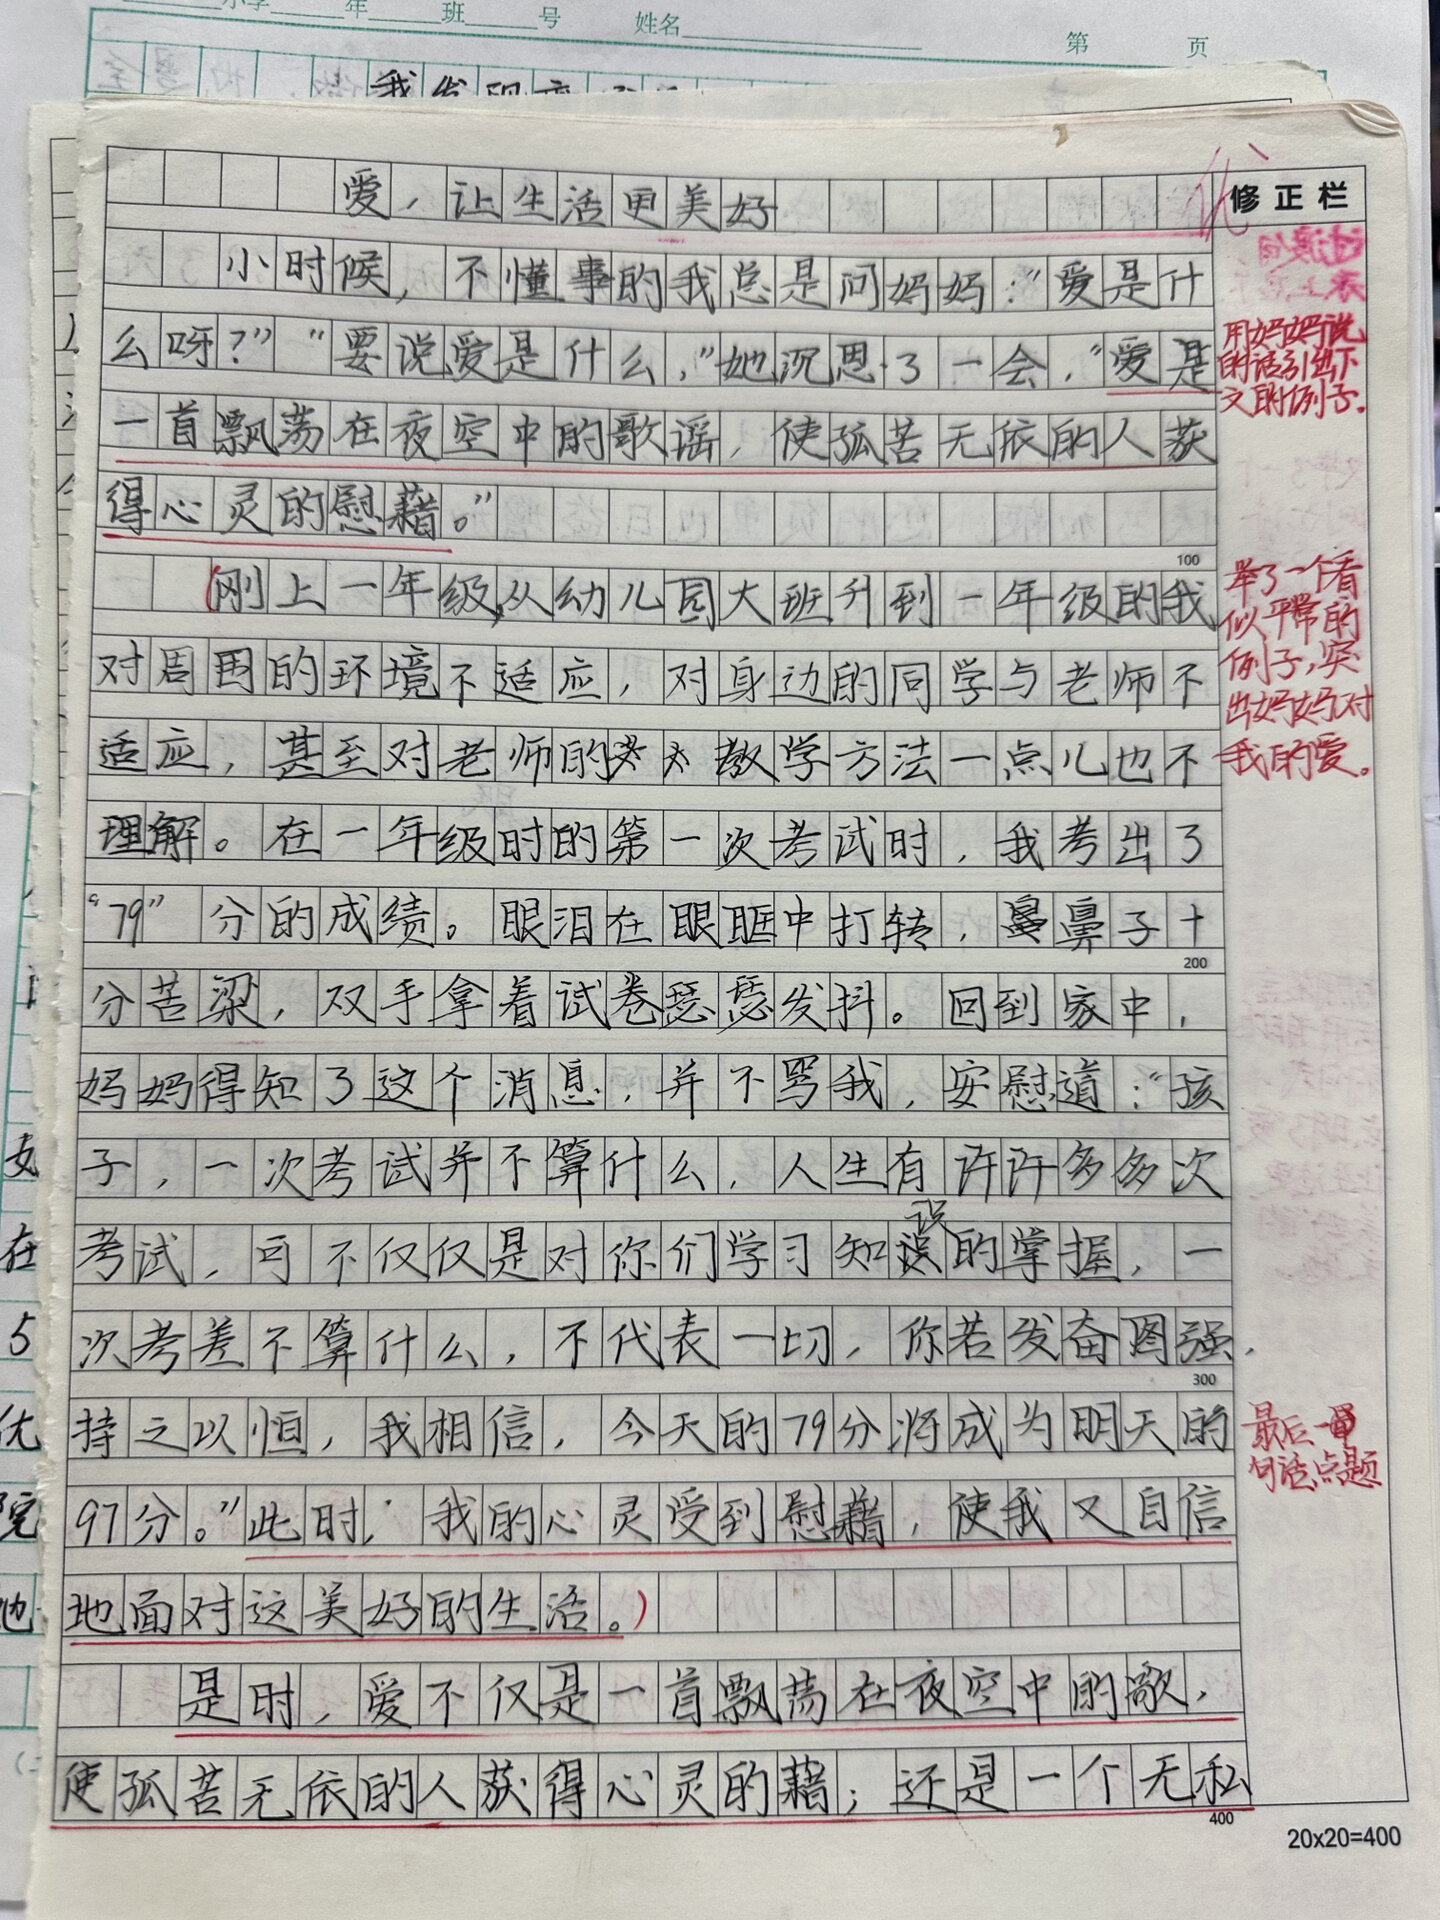 年 班 号 姓名 第 页
我发现
爱，让生活更美好
优
修正栏
小时候，不懂事的我总是问妈妈：“爱是什
么呀？”“要说爱是什么，”她沉思了一会，“爱是
一首飘荡在夜空中的歌谣，使孤苦无依的人获
得心灵的慰藉。”
用妈妈说
的话引出下
文的例子。
100
刚上一年级，从幼儿园大班升到一年级的我
对周围的环境不适应，对身边的同学与老师不
适应，甚至对老师的教学方法一点儿也不
理解。在一年级时的第一次考试时，我考出了
“79”分的成绩。眼泪在眼眶中打转，鼻子十
举了一个看
似平常的
例子，突
出妈妈对
我的爱。
200
分苦梁，双手拿着试卷瑟瑟发抖。回到家中，
妈妈得知了这个消息，并不骂我，安慰道：“孩
子，一次考试并不算什么，人生有许许多多次
考试，可不仅仅是对你们学习知识的掌握，一
次考差不算什么，不代表一切，你若发奋图强，
300
持之以恒，我相信，今天的79分将成为明天的
97分。”此时，我的心灵受到慰藉，使我又自信
地面对这美好的生活。
最后一
句话点题
是时，爱不仅是一首飘荡在夜空中的歌，
使孤苦无依的人获得心灵的藉；还是一个无私
400
20x20=400